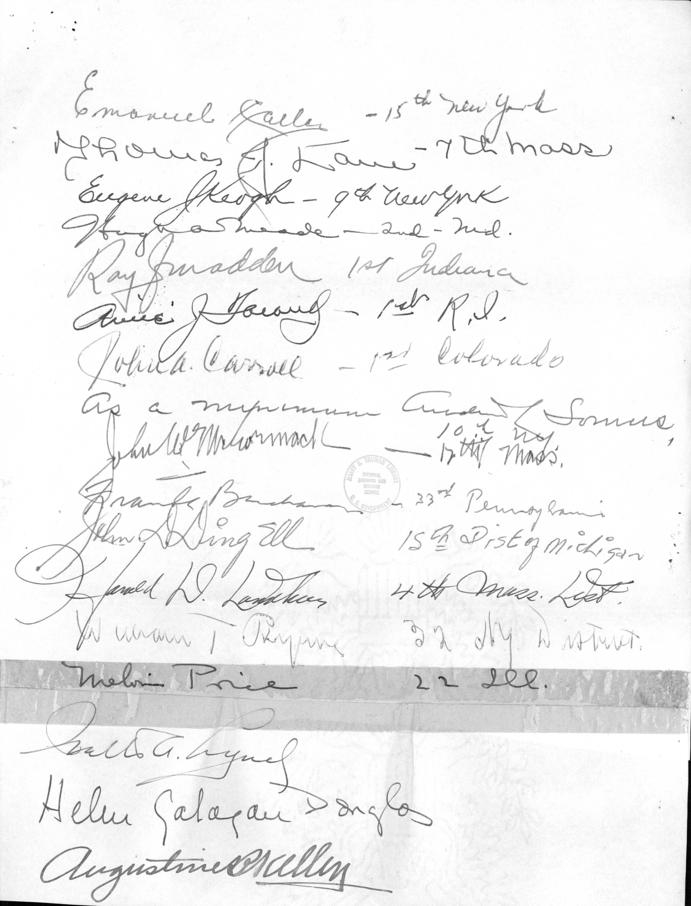 Emanuel Celler - 15th New York
Thomas J. Lane - 7th Mass
Eugene J Keogh - 9th New York
Hugh A Meade - 2nd - Md.
Ray J Madden 1st Indiana
Aime J Forand - 1st R.I.
John A. Carroll - 1st Colorado
As a minimum Andrew L Somers,
10th NY
John W McCormack - 12th Mass.
Frank Buchanan - 33rd Pennsylvania
John D Dingell 15th Dist of Michigan
Harold D. Donohue 4th Mass. Dist.
William T Byrne 32 NY District.
Melvin Price 22 Ill.
Walter A. Lynch
Helen Gahagan Douglas
Augustine B Kelley